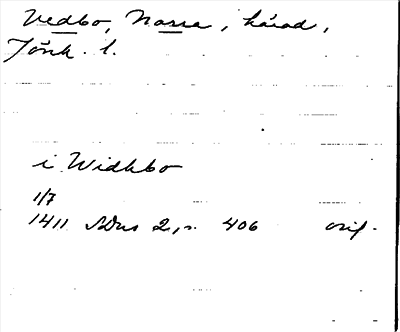 Vedbo, Norra, härad,
Jönk. l.
i Widhbo
1/7
1411 SDns 2, s. 406 orig.